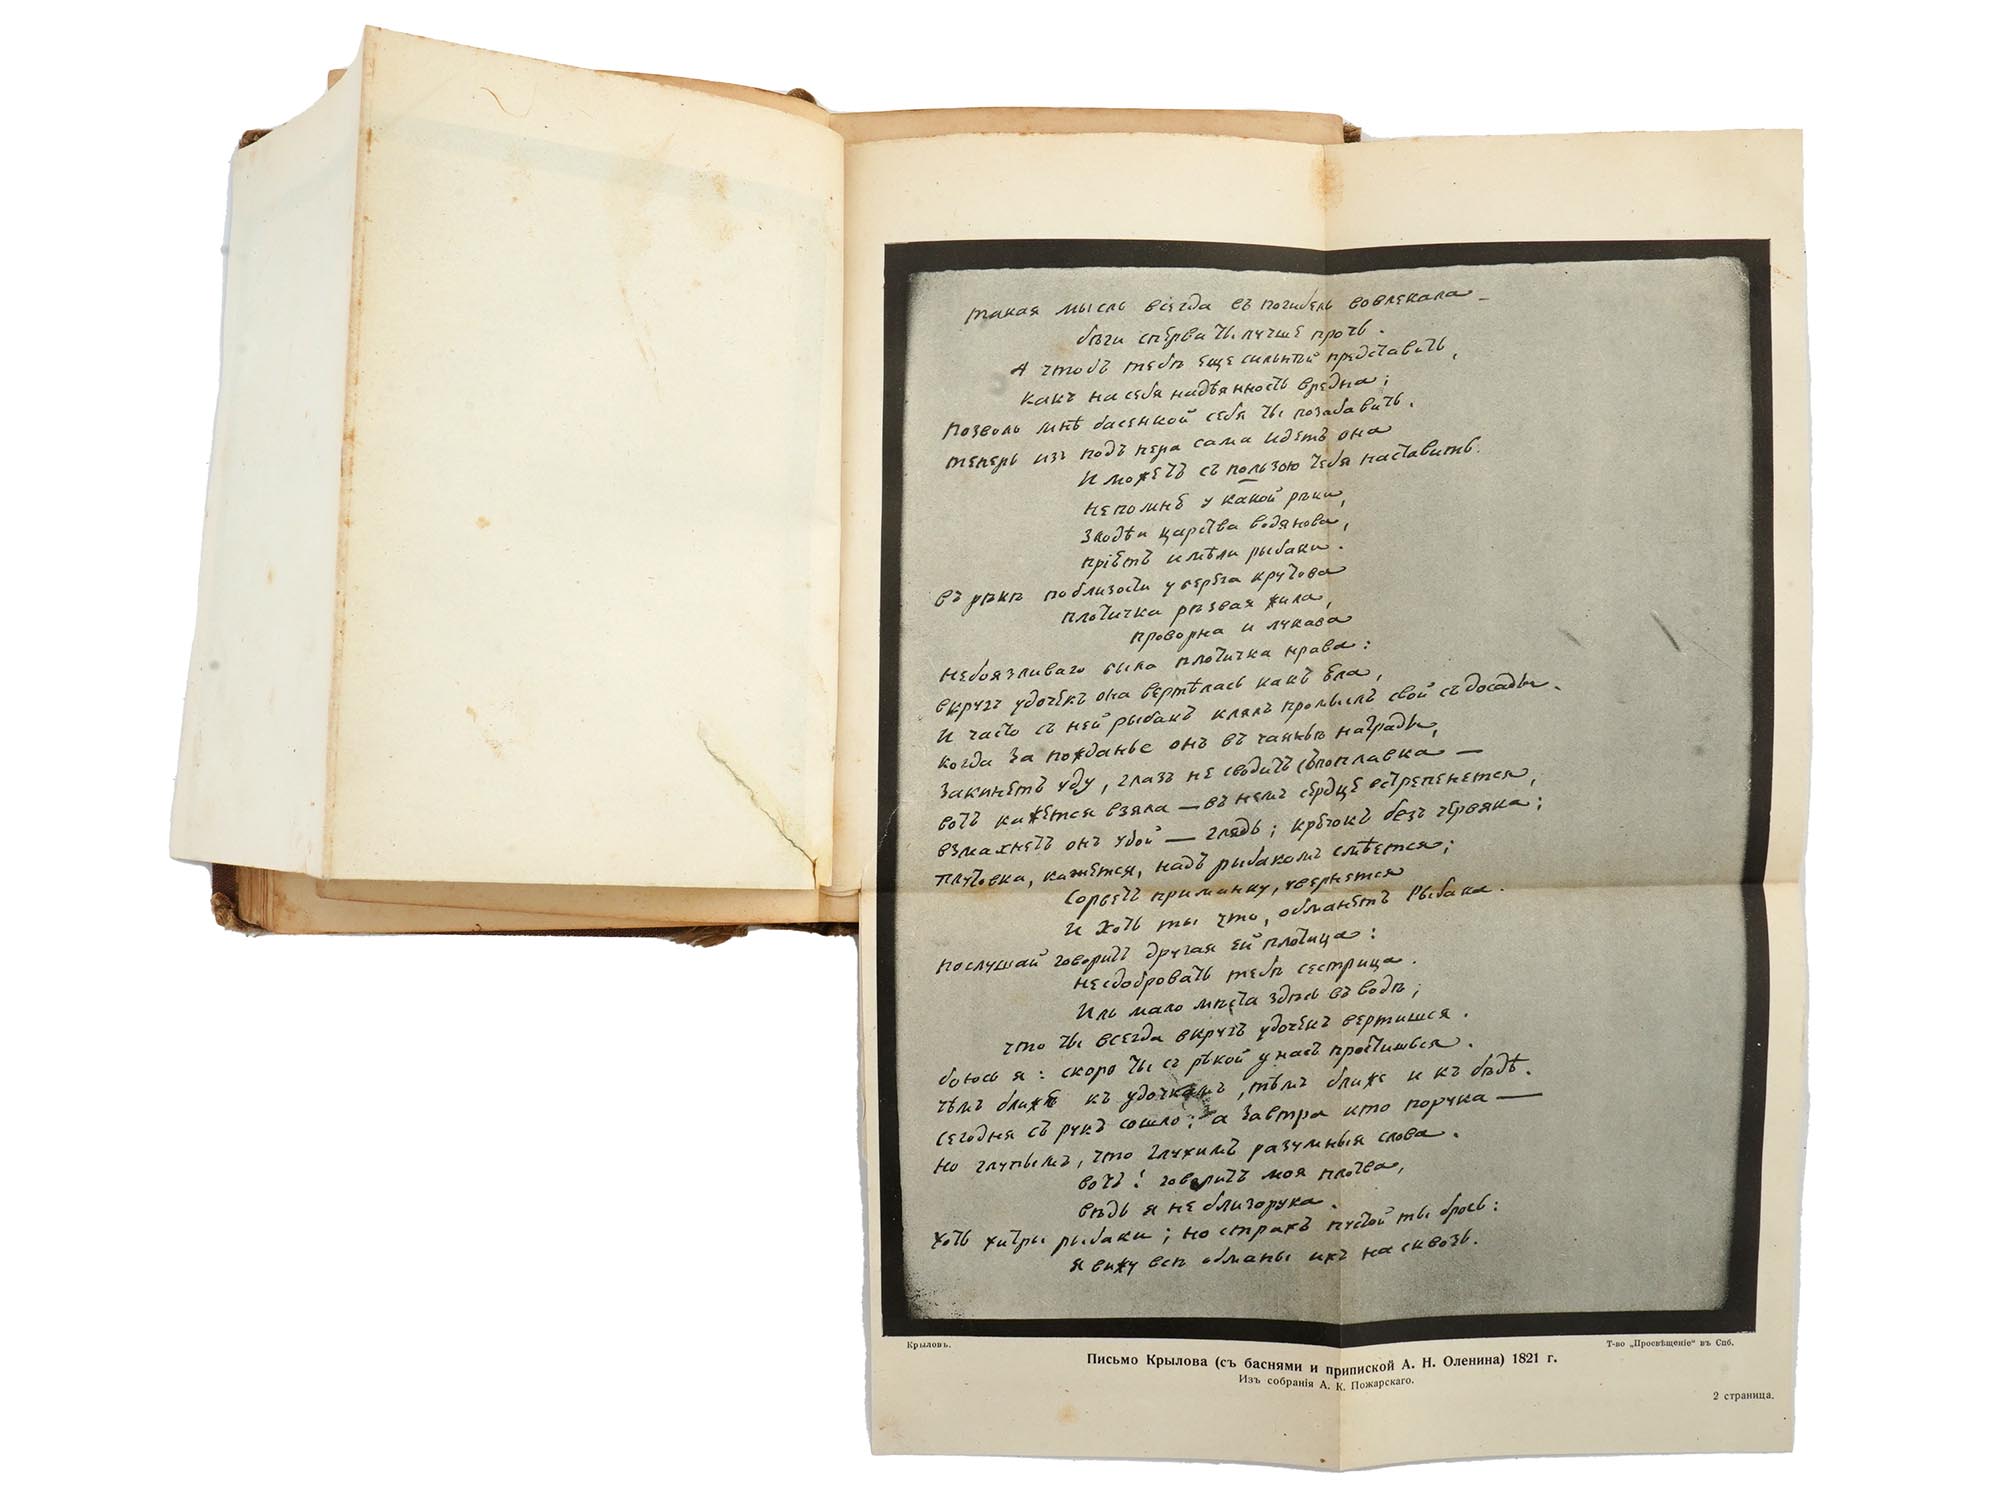 такая мысль всегда въ погибель вовлекала —
бѣги сперва ты лучше прочь.
А чтобъ тебѣ еще сильнѣй представить,
какъ на себя надѣянность вредна;
Позволь мнѣ басенкой себя ты позабавить.
теперь изъ подъ пера сама идетъ она
И можетъ съ пользою тебя наставить.
непомнѣ у какой рѣки,
Злодѣи царства водянова,
пріютъ имѣли рыбаки.
въ рѣкѣ поблизости у берега крутова
плотичка рѣзвая жила,
проворна и лукава
небоязливаго была плотичка нрава:
вкругъ удочекъ она вертѣлась какъ бла,
И часто съ ней рыбакъ клялъ промыслъ свой съ досады.
когда за пожданье онъ въ чаянью награды,
Закинетъ уду, глазъ не сводитъ съ поплавка —
вотъ кажется взяла — въ немъ сердце встрепенется,
взмахнетъ онъ удой — глядь; крючокъ безъ червяка;
плутовка, кажется, надъ рыбакомъ смѣется;
Сорветъ приманку, увернется
и хоть ты что, обманетъ Рыбака.
послушай говоритъ другая ей плотица:
несдобровать тебѣ сестрица.
Иль мало мѣста здѣсь въ водѣ;
что ты всегда вкругъ удочекъ вертишся.
боюсь я: скоро ты съ рѣкой у насъ простишься.
чѣмъ ближе къ удочкамъ, тѣмъ ближе и къ бѣдѣ.
сегодня съ рукъ сошло; а завтра кто порука —
но глупымъ, что глухимъ разумныя слова.
вотъ! говоритъ моя плотва,
вѣдь я не близорука.
хоть хитры рыбаки; но страхъ пустой ты брось:
я вижу всѣ обманы ихъ на сквозь.
Крыловъ.
Т-во „Просвѣщеніе“ въ Спб.
Письмо Крылова (съ баснями и припиской А. Н. Оленина) 1821 г.
Изъ собранія А. К. Пожарскаго.
2 страница.